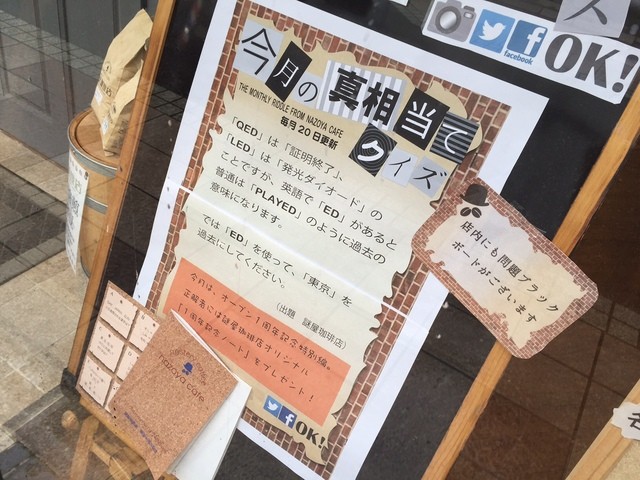 facebook
OK!
ズ
今月の真相当て
クイズ
THE MONTHLY RIDDLE FROM NAZOYA CAFE
毎月20日更新
「QED」は「証明終了」、
「LED」は「発光ダイオード」の
ことですが、英語で「ED」があると
普通は「PLAYED」のように過去の
意味になります。
では「ED」を使って、「東京」を
過去にしてください。
(出題 謎屋珈琲店)
今月は、オープン1周年記念特別編。
正解者には謎屋珈琲店オリジナル
「1周年記念ノート」をプレゼント!
OK!
店内にも問題ブラック
ボードがございます
nazoya cafe